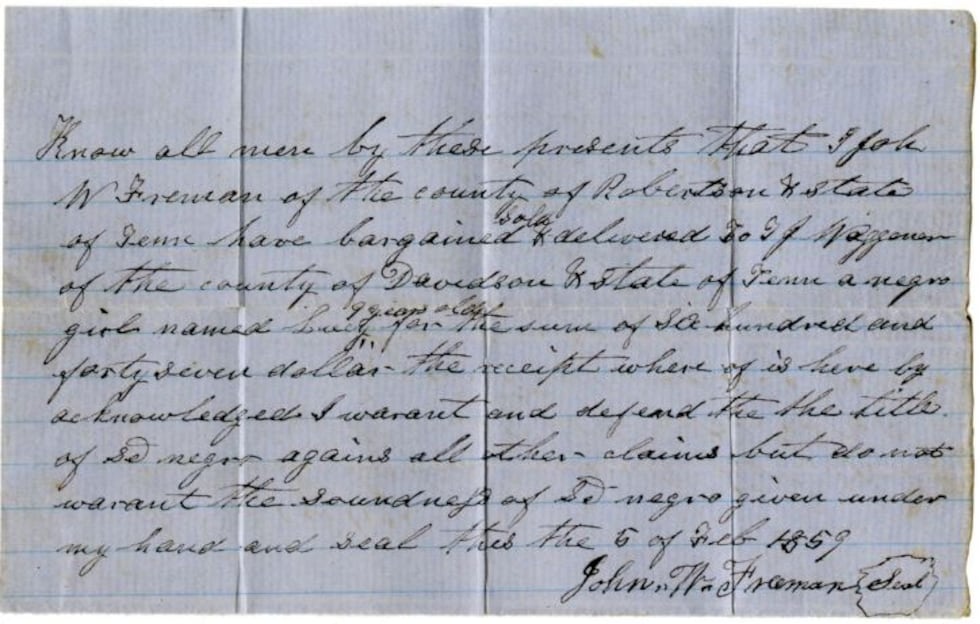 Know all men by these presents that I Joh
W Freman of the county of Robertson & state
of Tenn have bargained sold & delivered to I J Waggoner
of the county of Davidson & state of Tenn a negro
girl named Lucy 9 years old for the sum of six hundred and
forty seven dollar the receipt where of is here by
acknowledged I warant and defend the the title
of Sd negro agains all other claims but do not
warant the soundness of Sd negro given under
my hand and seal this the 5 of Feb 1859
John. W. Freeman Seal